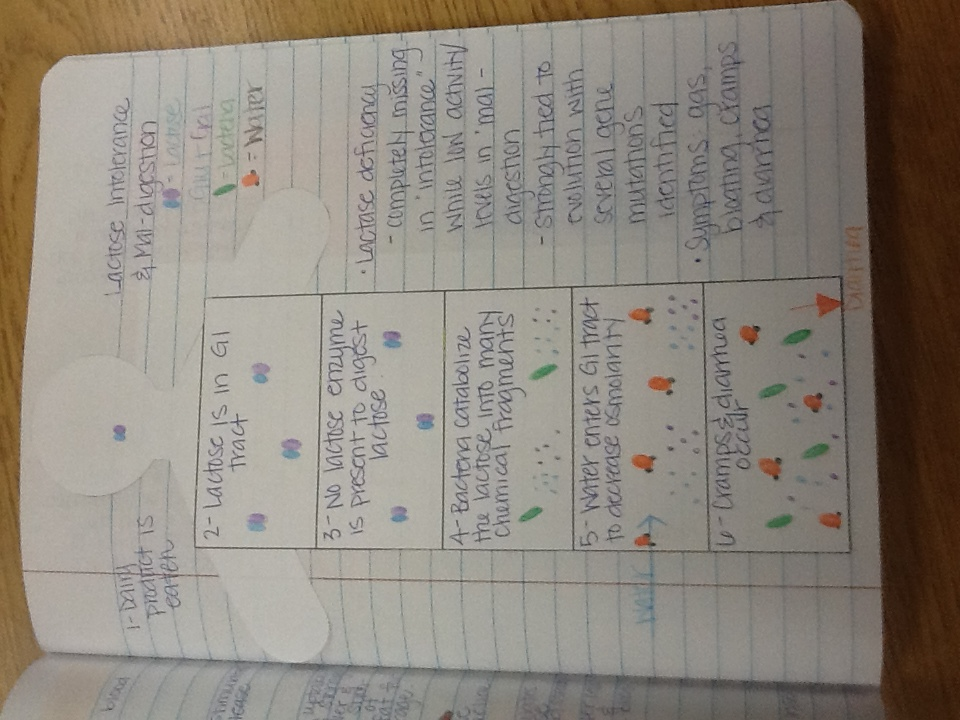 Lactose Intolerance
& Mal-digestion
= Lactose
Glu + Gal
= bacteria
= Water
1- Dairy
product is
eaten
2- Lactose is in GI
tract
3- No lactose enzyme
is present to digest
lactose
4- Bacteria catabolize
the lactose into many
chemical fragments
5- Water enters GI tract
to decrease osmolarity
Water
6- Cramps & diarrhea
occur
Diarrhea
• Lactase deficiency
- completely missing
in "intolerance" -
while low activity
levels in "mal -
digestion
- strongly tied to
evolution with
several gene
mutations
identified
• Symptoms: gas,
bloating, cramps
& diarrhea
blood